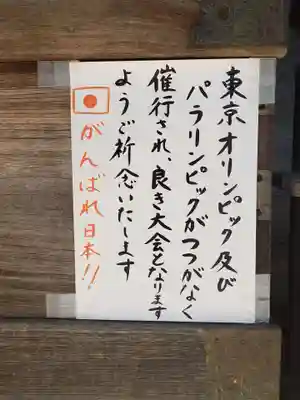 東京オリンピック及び
パラリンピックがつつがなく
催行され、良き大会となります
ようご祈念いたします
がんばれ日本!!